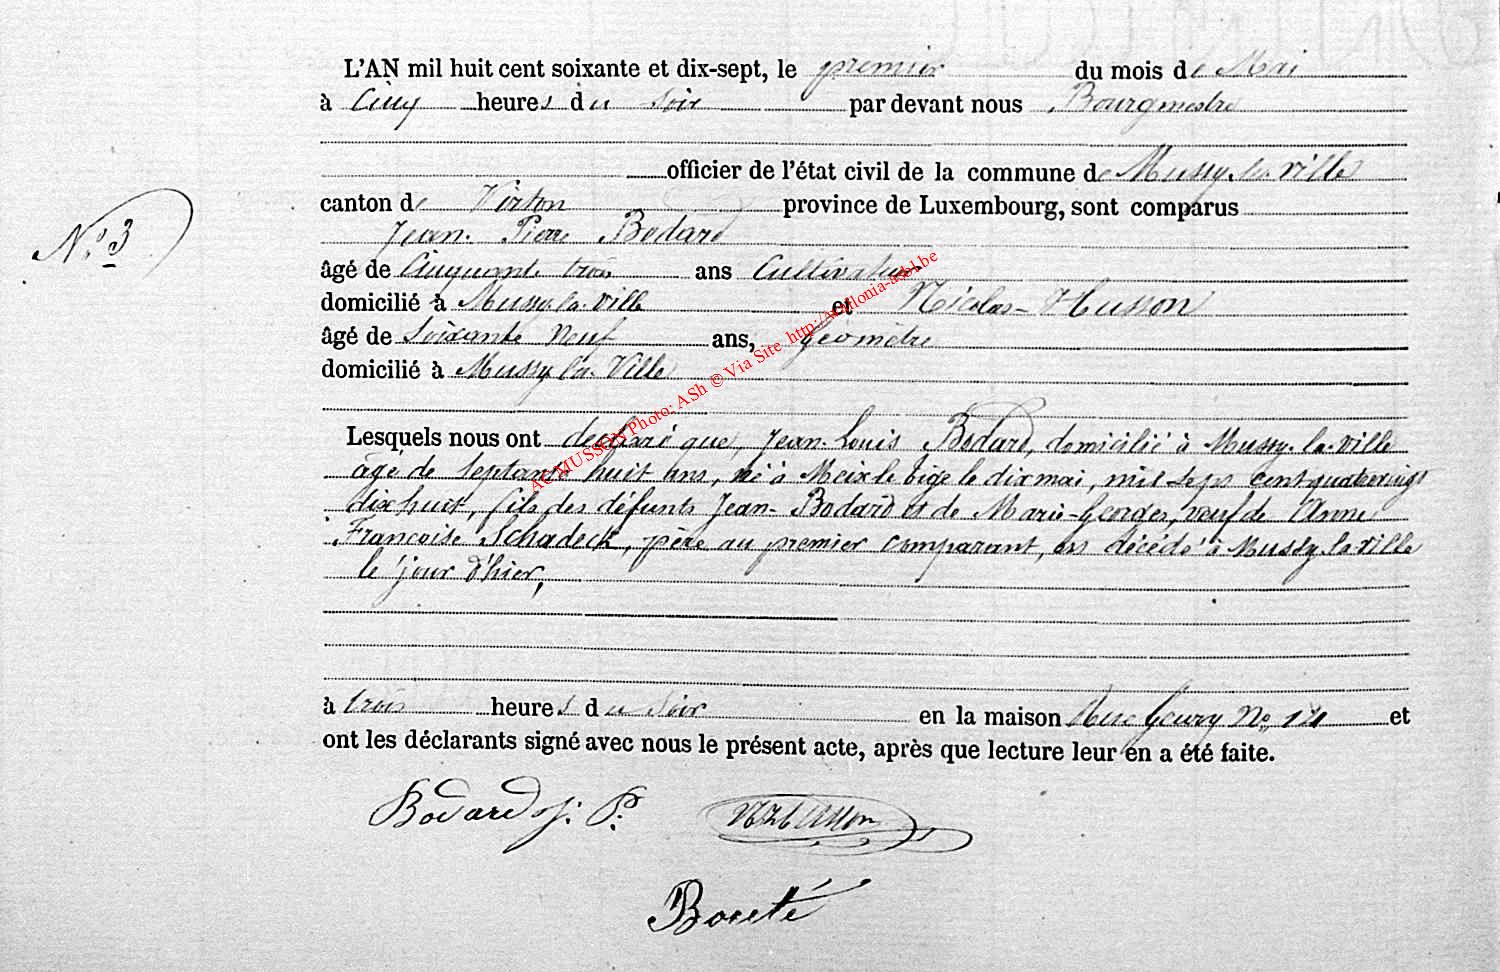 L'AN mil huit cent soixante et dix-sept, le premier du mois de Mai
à Cinq heures du soir par devant nous Bourgmestre
officier de l'état civil de la commune de Mussy-la-ville
canton de Virton province de Luxembourg, sont comparus
N° 3
Jean-Pierre Bodard
âgé de Cinquante trois ans Cultivateur
domicilié à Mussy-la-ville et Nicolas-Husson
âgé de Soixante Neuf ans, Géomètre
domicilié à Mussy-la-Ville
AC MUSSON Photo: ASh © Via Site http://wallonia-asbl.be
Lesquels nous ont déclaré que, Jean-Louis Bodard, domicilié à Mussy-la-ville
âgé de septante huit ans, né à Meix le tige le dix mai, mil sept cent quatrevingt
dix huit, fils des défunts Jean-Bodard et de Marie-Georges, veuf de Anne
Francoise Schadeck, père au premier comparant, est décédé à Mussy-la-ville
le jour d'hier,
à trois heures du soir en la maison Rue No et
ont les déclarants signé avec nous le présent acte, après que lecture leur en a été faite.
Bodard J. P. N Husson
Bouté